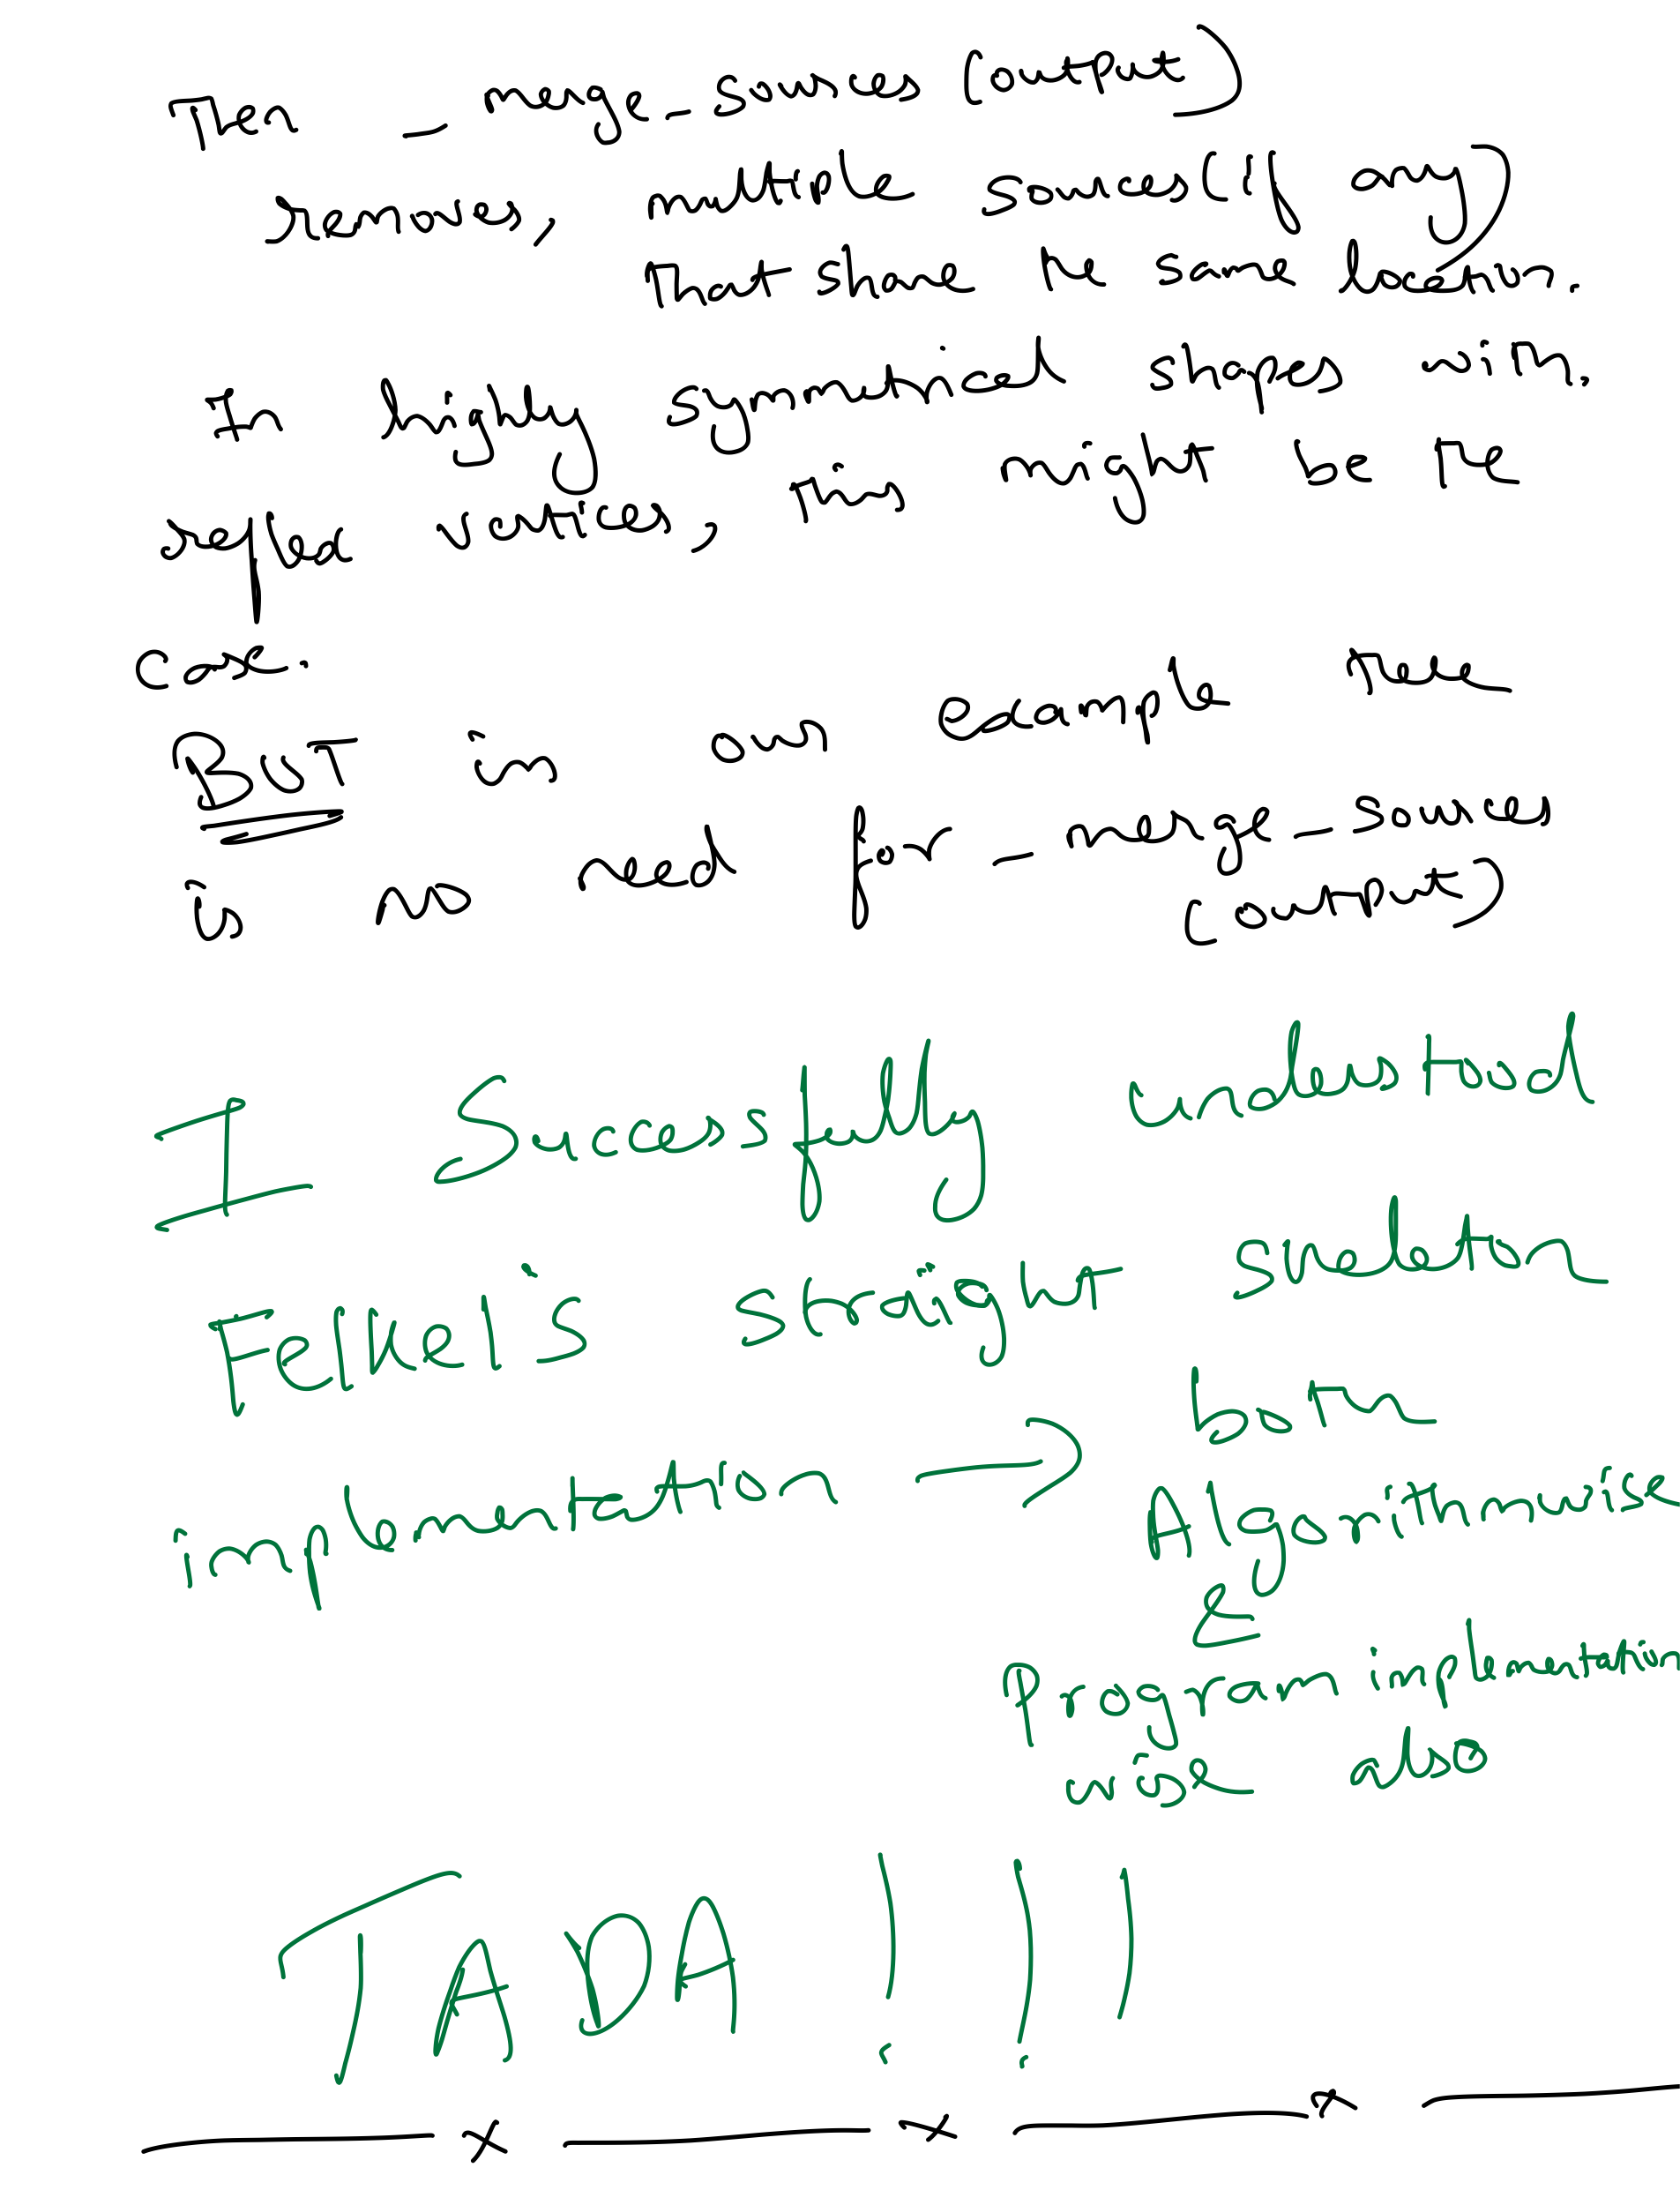 Then _merge_sources (output)
removes, multiple sources (if any)
that share the same location.
In highly symmetrical shapes with.
reflex vertices, this might be the
case.
BUT in our example there
is no need for _merge_sources
(output)
I Successfully understood
Felkel's straight skeleton
implementation → both
Algorithm wise
&
Program implementation
wise also
TADA !!!